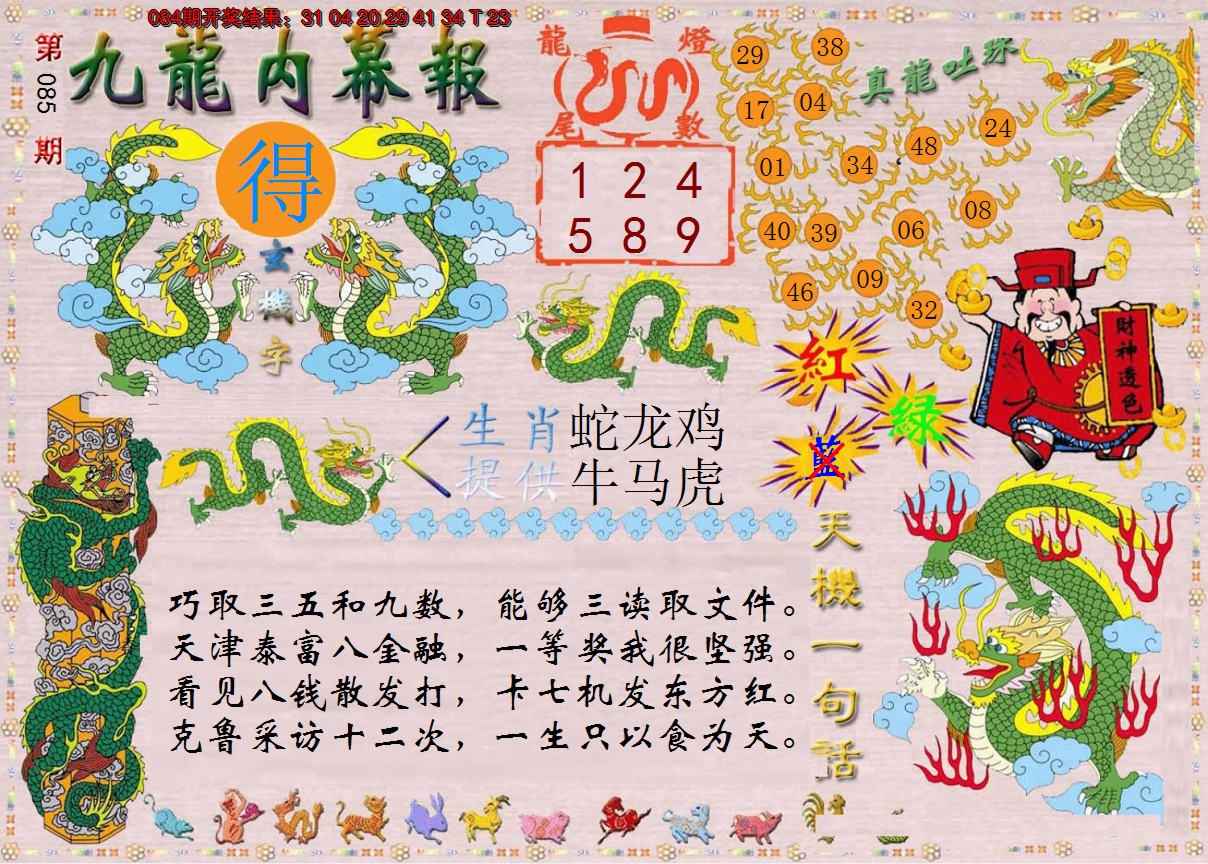 084期开奖结果：31 04 20 29 41 34 T 23
第085期
九龍内幕報
得
玄機字
龍燈
尾數
1 2 4
5 8 9
真龍吐珠
29 38
17 04
01 34 48 24
40 39 06 08
46 09 32
財神透色
紅
綠
藍
生肖 蛇龙鸡
提供 牛马虎
天機一句話
巧取三五和九数，能够三读取文件。
天津泰富八金融，一等奖我很坚强。
看见八钱散发打，卡七机发东方红。
克鲁采访十二次，一生只以食为天。